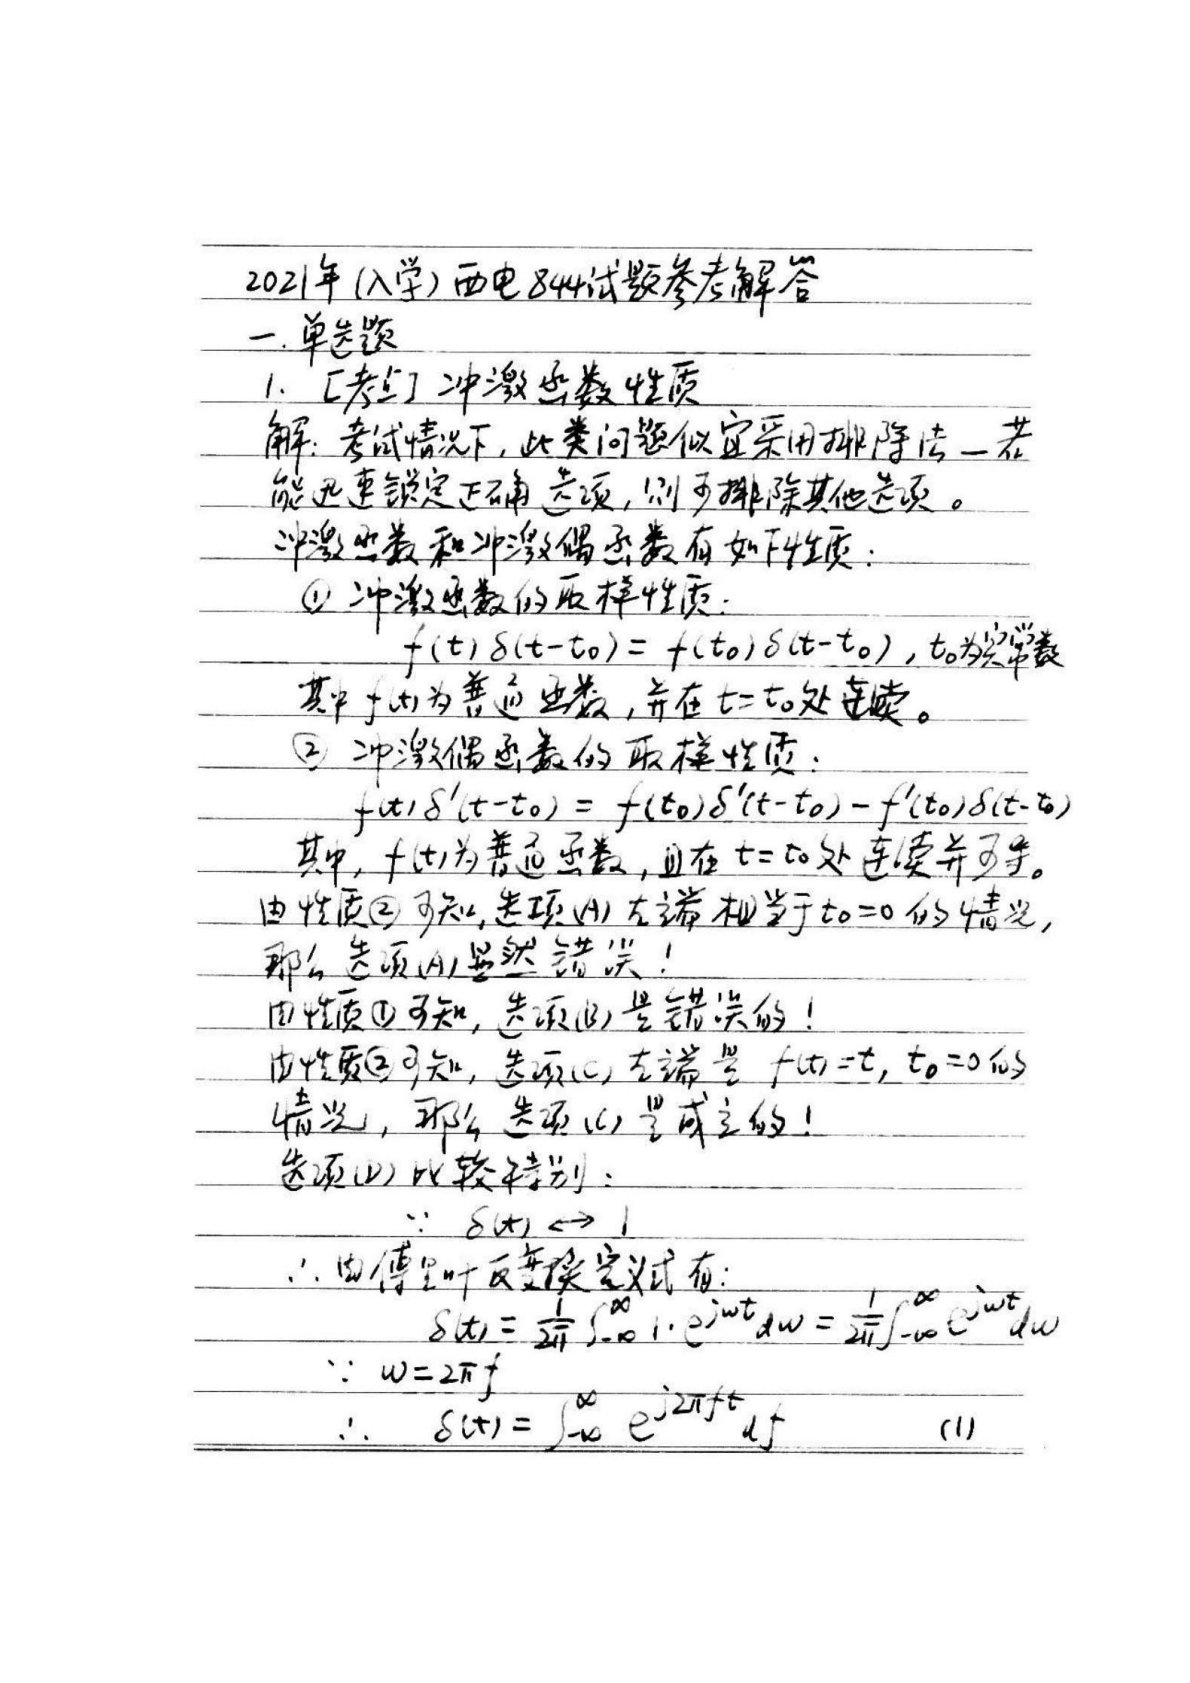 2021年(入学)西电844试题参考解答
一.单选题
1. [考点] 冲激函数性质
解: 考试情况下, 此类问题似宜采用排除法—若
能迅速锁定正确选项, 则可排除其他选项。
冲激函数和冲激偶函数有如下性质:
① 冲激函数的取样性质:
f(t)δ(t-t₀) = f(t₀)δ(t-t₀), t₀为实常数
其中 f(t)为普通函数, 并在 t=t₀处连续。
② 冲激偶函数的取样性质:
f(t)δ'(t-t₀) = f(t₀)δ'(t-t₀) - f'(t₀)δ(t-t₀)
其中, f(t)为普通函数, 且在 t=t₀处连续并可导。
由性质②可知, 选项(A)左端相当于t₀=0的情况,
那么选项(A)显然错误!
由性质①可知, 选项(B)是错误的!
由性质②可知, 选项(C)左端是 f(t)=t, t₀=0的
情况, 那么选项(C)是成立的!
选项(D)比较特别:
∵ δ(t) ↔ 1
∴ 由傅里叶反变换定义式有:
δ(t) = 1/2π ∫_{-∞}^{∞} 1·e^{jωt}dω = 1/2π ∫_{-∞}^{∞} e^{jωt}dω
∵ ω=2πf
∴ δ(t) = ∫_{-∞}^{∞} e^{j2πft}df (1)